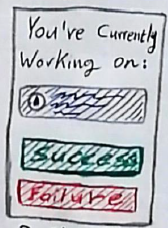 You've Currently
Working on:
Success
Failure